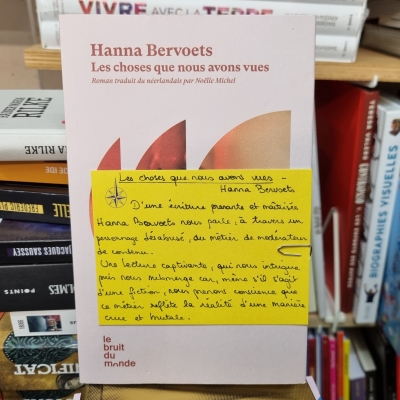 VIVRE AVEC LA TERRE
Hanna Bervoets
Les choses que nous avons vues
Roman traduit du néerlandais par Noëlle Michel
Les choses que nous avons vues -
Hanna Bervoets
D'une écriture prenante et maîtrisée
Hanna Bervoets nous parle, à travers un
personnage désabusé, du métier de modérateur
de contenu.
Une lecture captivante, qui nous intrigue
puis nous submerge car, même s'il s'agit
d'une fiction, nous prenons conscience que
ce métier reflète la réalité d'une manière
crue et brutale.
le
bruit
du
monde
RILKE
A RILKE
JACQUES SAUSSEY
POINTS
BIOGRAPHIES VISUELLES